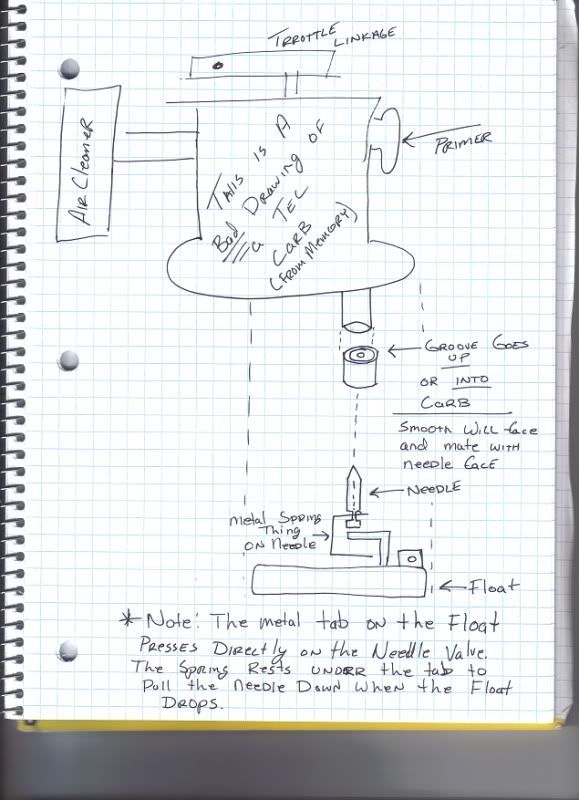 THROTTLE
LINKAGE
Air Cleaner
PRIMER
This is A
Bad Drawing of
a TEC
CARB
(FROM MEMORY)
GROOVE GOES
UP
OR INTO
CARB
Smooth Will face
and mate with
needle face
NEEDLE
Metal Spring
Thing
ON Needle
Float
* Note: The metal tab on the Float
Presses Directly on the Needle Valve.
The Spring Rests UNDER the tab to
Pull the Needle Down When the Float
Drops.